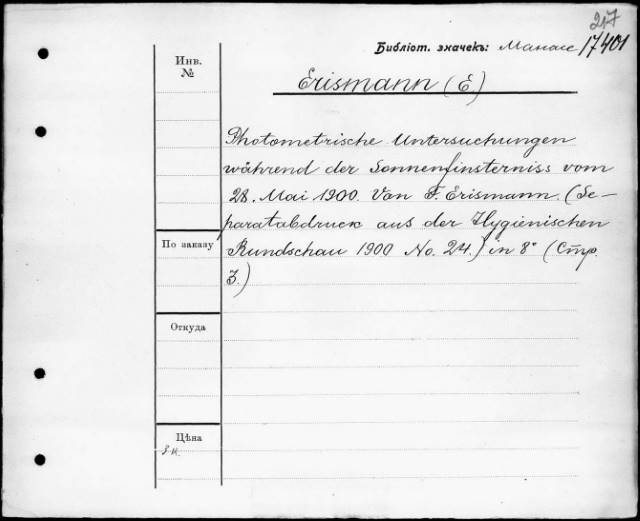 217
Библіот. значекъ: Манасс 17401
Инв.
№
Erismann (E)
Photometrische Untersuchungen
während der Sonnenfinsterniss vom
28. Mai 1900. Von F. Erismann. (Se-
paratabdruck aus der Hygienischen
По заказу
Rundschau 1900 No. 24.) in 8° (Стр.
3.)
Откуда
Цѣна